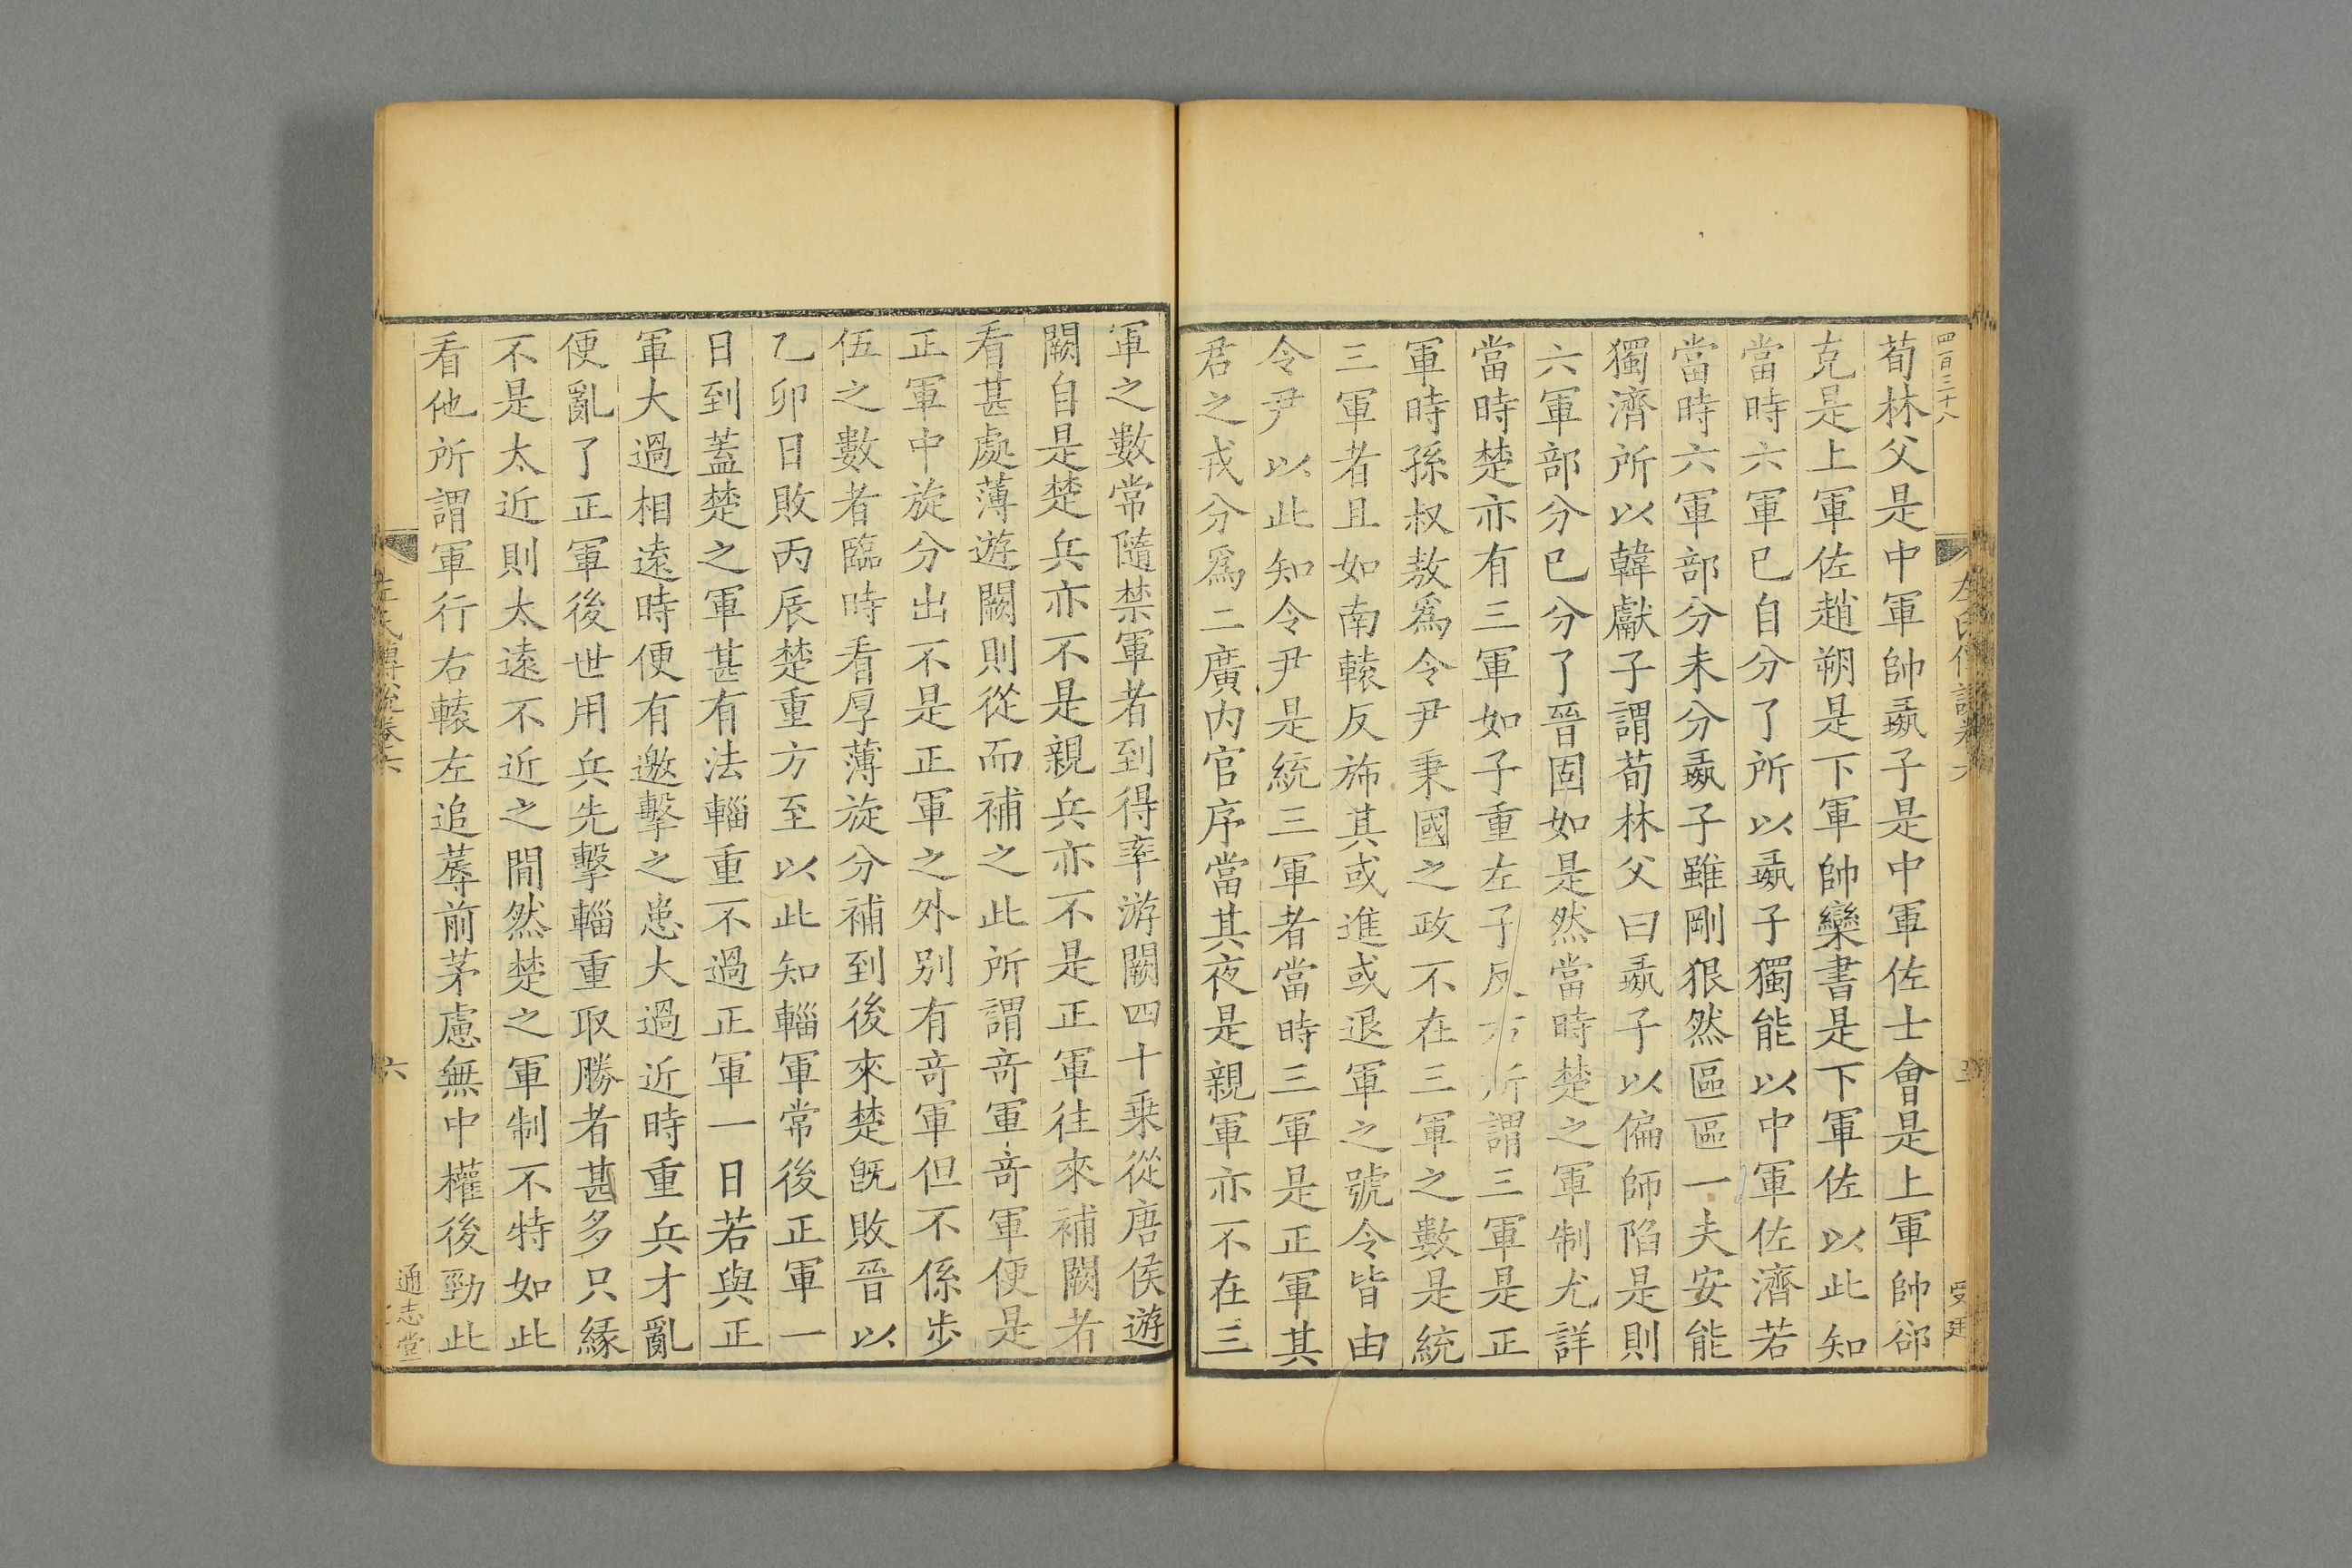 四百三十八
荀林父是中軍帥彘子是中軍佐士會是上軍帥郤
克是上軍佐趙朔是下軍帥欒書是下軍佐以此知
當時六軍已自分了所以彘子獨能以中軍佐濟若
當時六軍部分未分彘子雖剛狠然區區一夫安能
獨濟所以韓獻子謂荀林父曰彘子以偏師陷是則
六軍部分已分了晉固如是然當時楚之軍制尤詳
當時楚亦有三軍如子重左子反右所謂三軍是正
軍時孫叔敖爲令尹秉國之政不在三軍之數是統
三軍者且如南轅反斾其或進或退軍之號令皆由
令尹以此知令尹是統三軍者當時三軍是正軍其
君之戎分爲二廣内官序當其夜是親軍亦不在三
左氏傳說卷六
五
受廷
軍之數常隨禁軍者到得率游闕四十乗從唐侯遊
闕自是楚兵亦不是親兵亦不是正軍往來補闕者
看甚處薄遊闕則從而補之此所謂竒軍竒軍便是
正軍中旋分出不是正軍之外别有竒軍但不係步
伍之數者臨時看厚薄旋分補到後來楚旣敗晉以
乙卯日敗丙辰楚重方至以此知輜軍常後正軍一
日到蓋楚之軍甚有法輜重不過正軍一日若與正
軍大過相遠時便有邀擊之患大過近時重兵才亂
便亂了正軍後世用兵先擊輜重取勝者甚多只緣
不是太近則太遠不近之間然楚之軍制不特如此
看他所謂軍行右轅左追蓐前茅慮無中權後勁此
左氏傳說卷六
六
通志堂